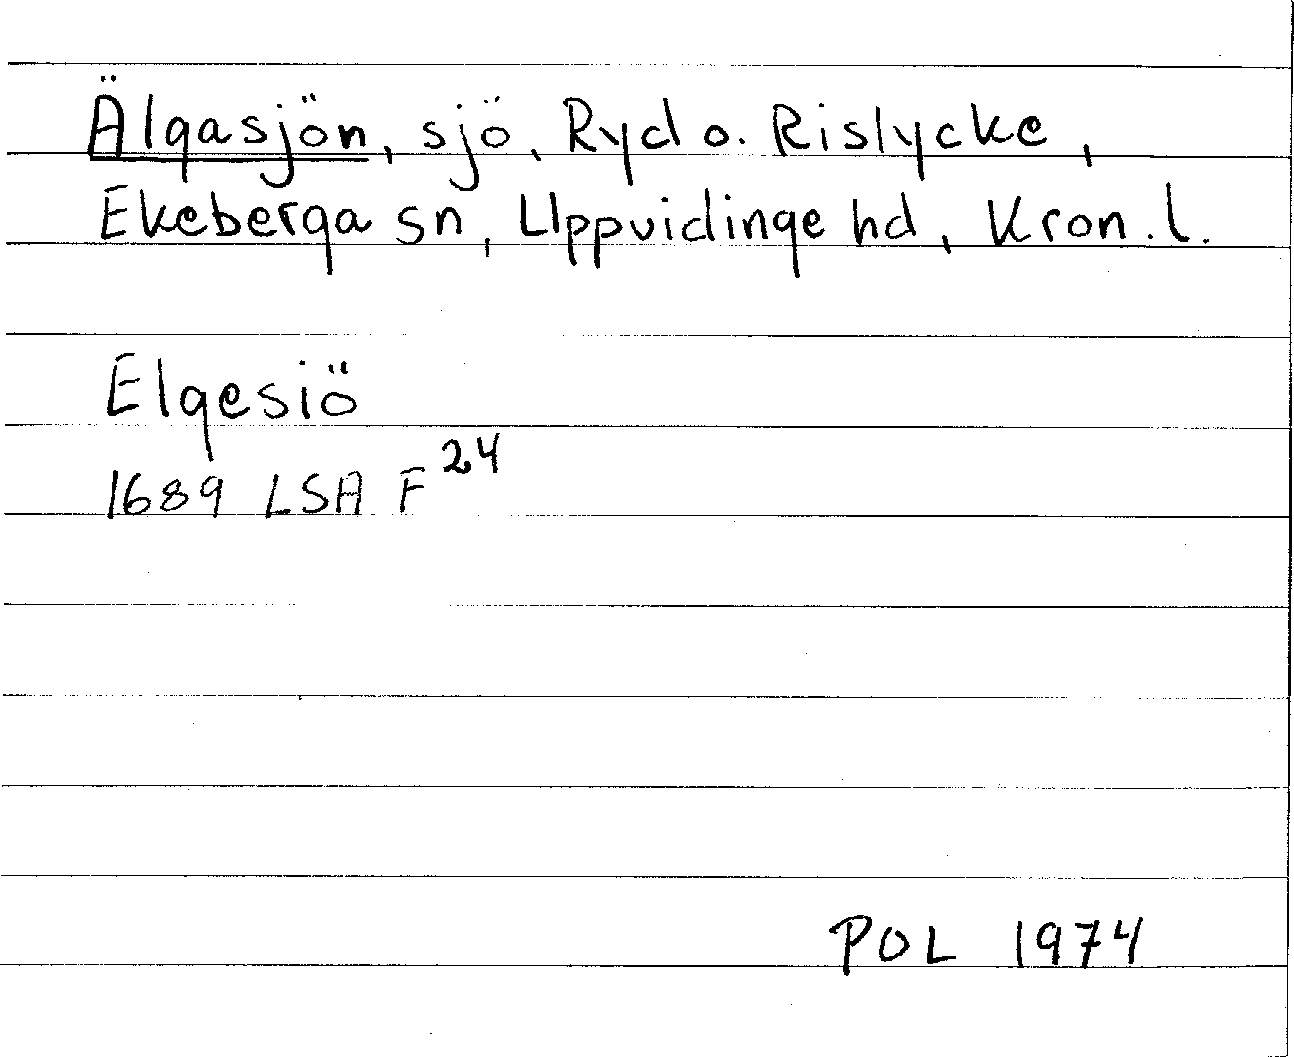 Älgasjön, sjö, Ryd o. Rislycke,
Ekeberga sn, Uppvidinge hd, Kron. l.
Elgesiö
1689 LSA F 24
POL 1974